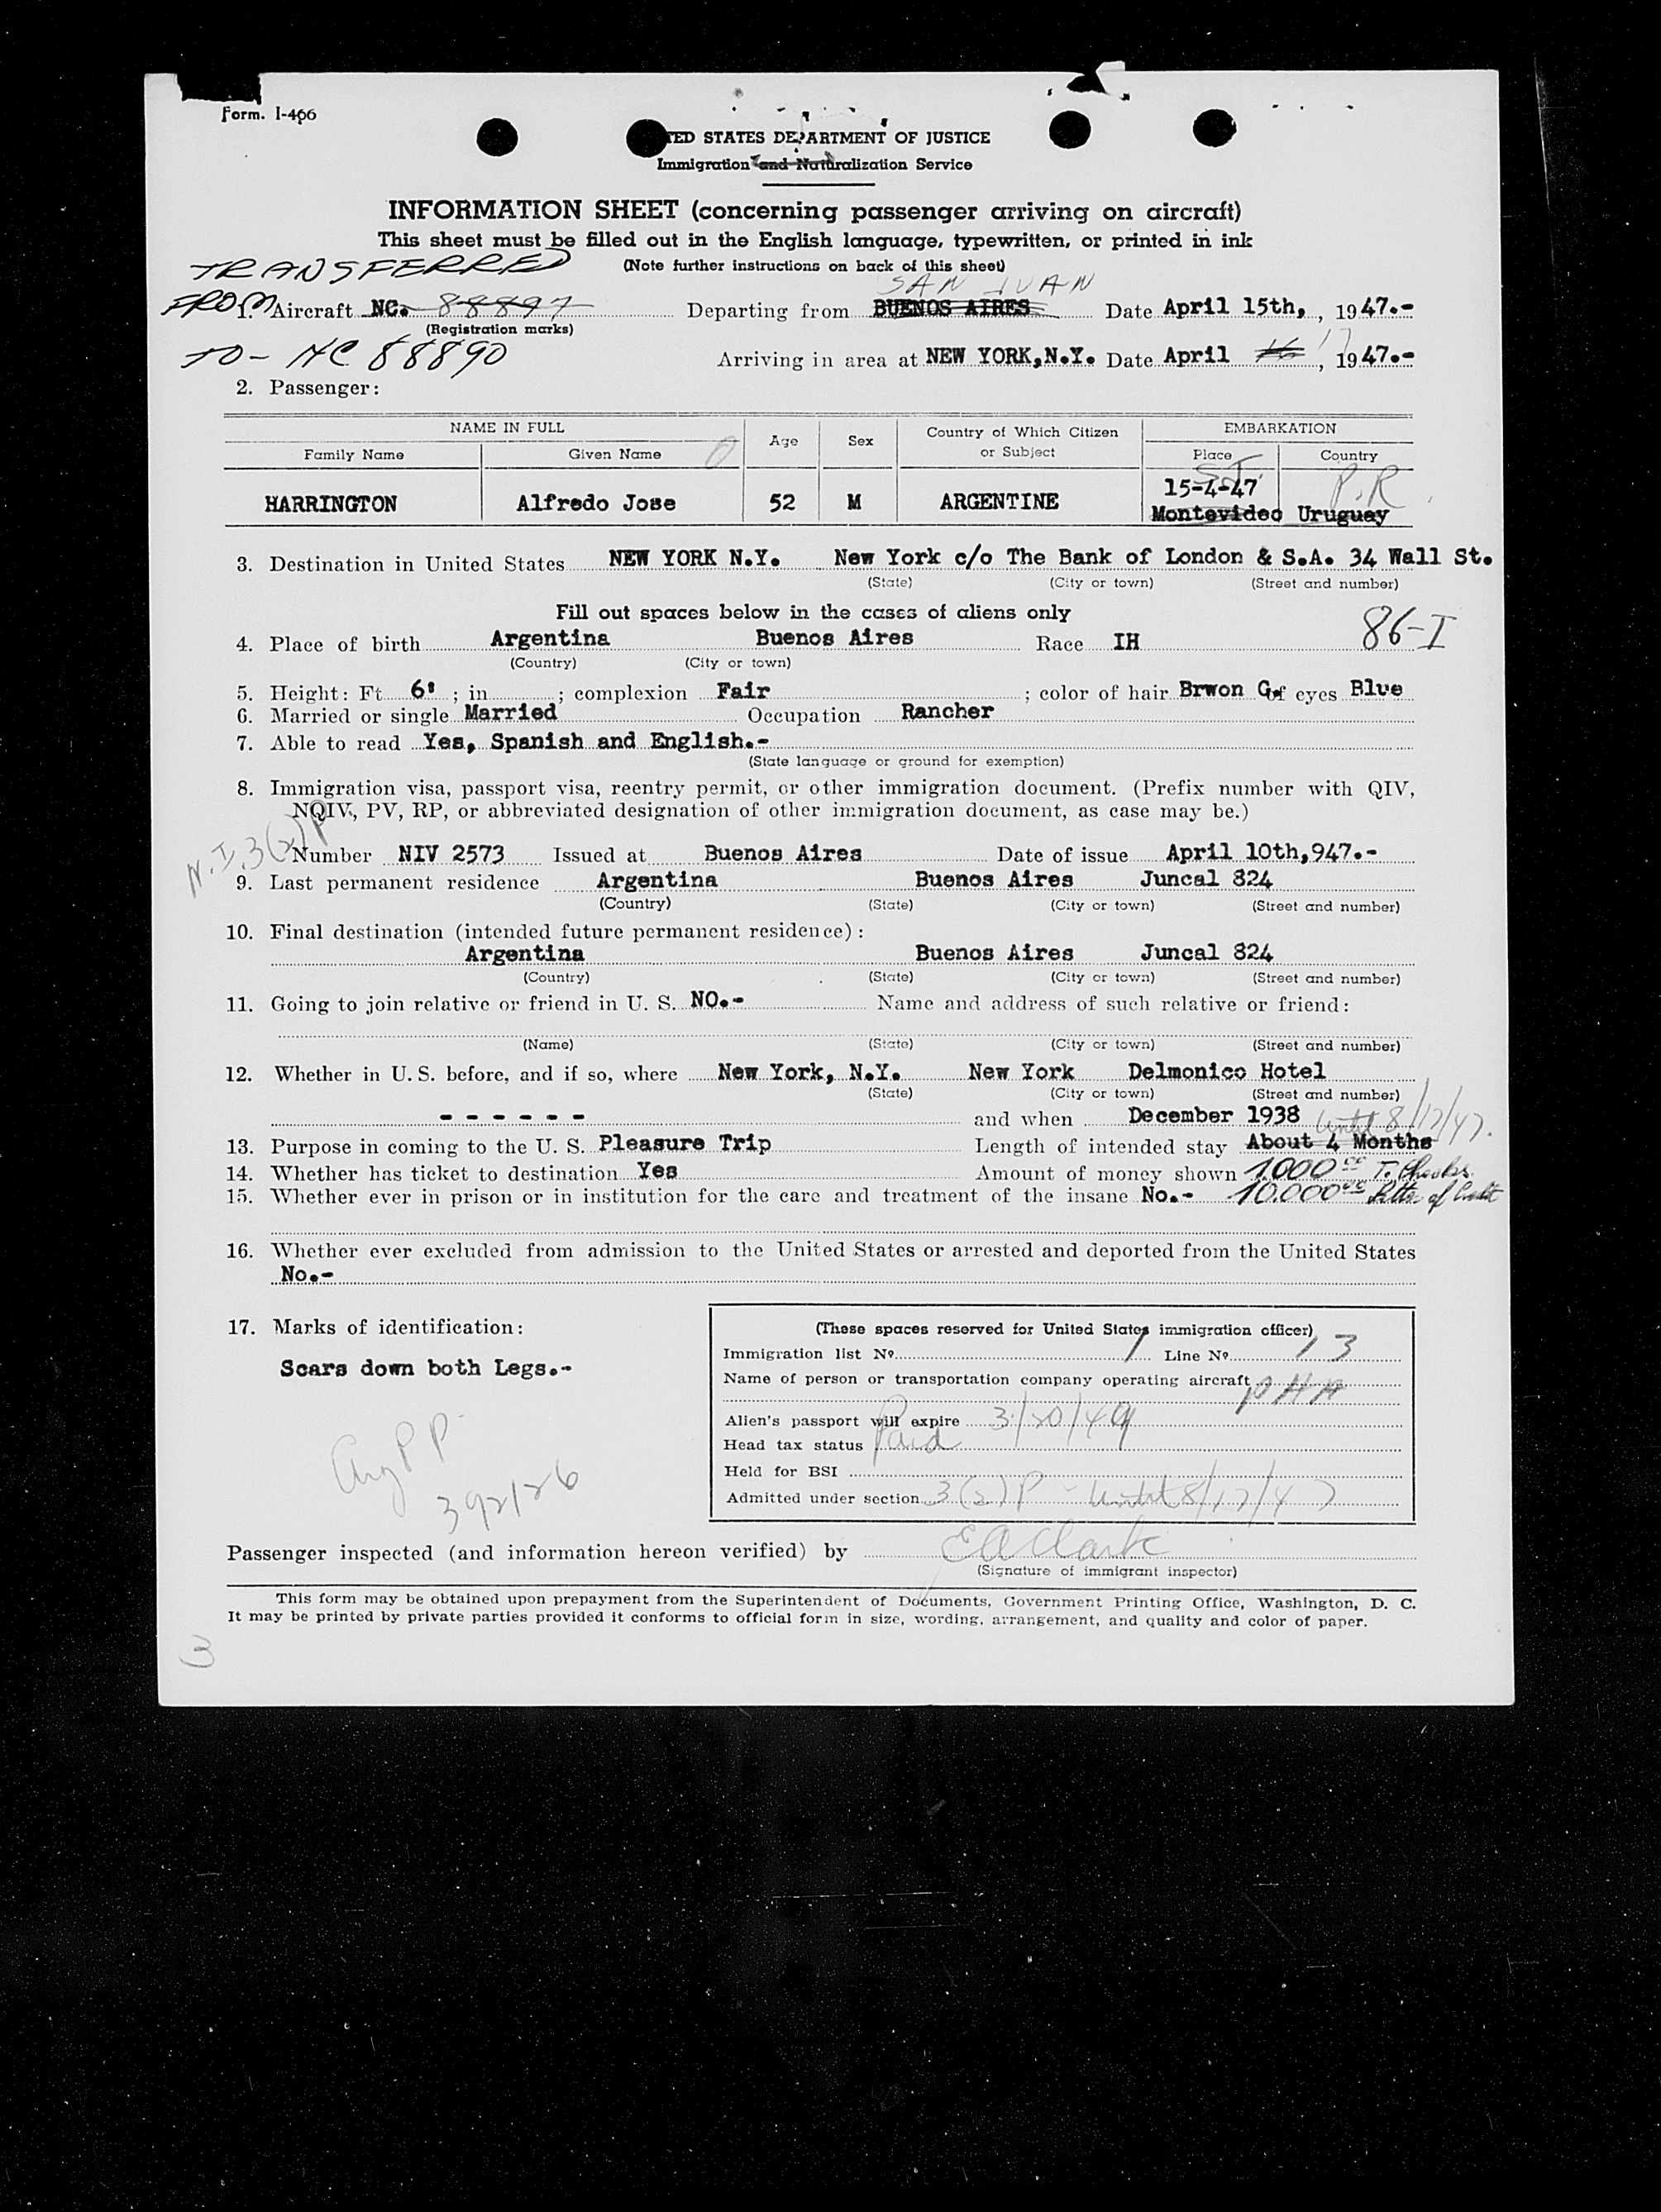 Form. I-466
TED STATES DEPARTMENT OF JUSTICE
Immigration and Naturalization Service
INFORMATION SHEET (concerning passenger arriving on aircraft)
This sheet must be filled out in the English language, typewritten, or printed in ink
(Note further instructions on back of this sheet)
TRANSFERRED
SAN JUAN
FROM 1. Aircraft NC. 88897 Departing from BUENOS AIRES Date April 15th, , 1947.-
(Registration marks)
17
TO - NC 88890 Arriving in area at NEW YORK,N.Y. Date April 16 , 1947.-
2. Passenger:
NAME IN FULL Age Sex Country of Which Citizen or Subject EMBARKATION
Family Name Given Name Place Country
S.J. P.R.
15-4-47
HARRINGTON Alfredo Jose 52 M ARGENTINE Montevideo Uruguay
3. Destination in United States NEW YORK N.Y. New York c/o The Bank of London & S.A. 34 Wall St.
(State) (City or town) (Street and number)
Fill out spaces below in the cases of aliens only
86-I
4. Place of birth Argentina Buenos Aires Race IH
(Country) (City or town)
5. Height: Ft 6' ; in ; complexion Fair ; color of hair Brwon G. of eyes Blue
6. Married or single Married Occupation Rancher
7. Able to read Yes, Spanish and English.-
(State language or ground for exemption)
8. Immigration visa, passport visa, reentry permit, or other immigration document. (Prefix number with QIV,
NQIV, PV, RP, or abbreviated designation of other immigration document, as case may be.)
N.I. 3(2)P
Number NIV 2573 Issued at Buenos Aires Date of issue April 10th,947.-
9. Last permanent residence Argentina Buenos Aires Juncal 824
(Country) (State) (City or town) (Street and number)
10. Final destination (intended future permanent residence):
Argentina Buenos Aires Juncal 824
(Country) (State) (City or town) (Street and number)
11. Going to join relative or friend in U. S. NO.- Name and address of such relative or friend:
(Name) (State) (City or town) (Street and number)
12. Whether in U. S. before, and if so, where New York, N.Y. New York Delmonico Hotel
(State) (City or town) (Street and number)
- - - - - - and when December 1938
until 8/17/47.
13. Purpose in coming to the U. S. Pleasure Trip Length of intended stay About 4 Months
14. Whether has ticket to destination Yes Amount of money shown 1000 00 T. Checks
15. Whether ever in prison or in institution for the care and treatment of the insane No.- 10.000 00 Letter of Credit
16. Whether ever excluded from admission to the United States or arrested and deported from the United States
No.-
17. Marks of identification:
Scars down both Legs.-
Arg PP
392126
(These spaces reserved for United States immigration officer)
Immigration list No. 1 Line No. 13
Name of person or transportation company operating aircraft
PAA
Alien's passport will expire 3/20/49
Head tax status Paid
Held for BSI
Admitted under section 3(2)P - Until 8/17/47
Passenger inspected (and information hereon verified) by EA Clark
(Signature of immigrant inspector)
This form may be obtained upon prepayment from the Superintendent of Documents, Government Printing Office, Washington, D. C.
It may be printed by private parties provided it conforms to official form in size, wording, arrangement, and quality and color of paper.
3